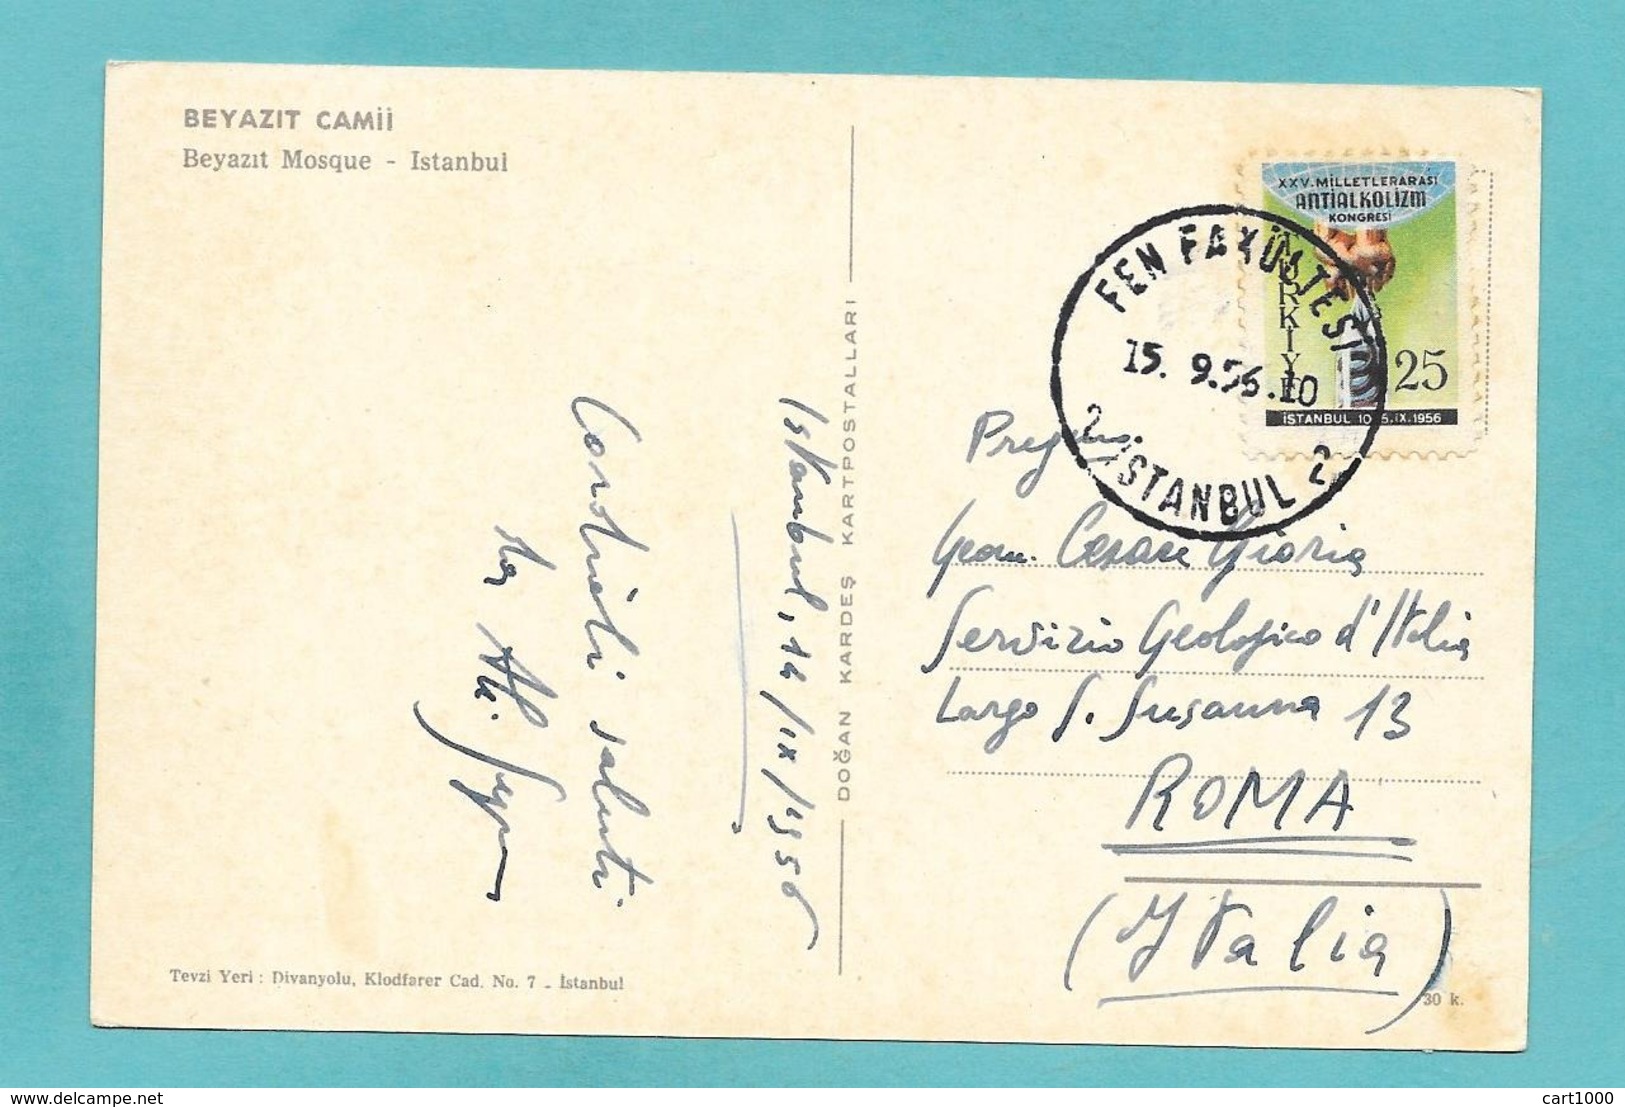 BEYAZIT CAMİİ
Beyazıt Mosque - Istanbul
Istanbul, 14/IX/1956
Cordiali saluti
da
DOĞAN KARDEŞ KARTPOSTALLARI
Tevzi Yeri : Divanyolu, Klodfarer Cad. No. 7 - İstanbul
XXV. MİLLETLERARASI
ANTİALKOLİZM
KONGRESİ
TÜRKİYE
25
İSTANBUL 10-15.IX.1956
FEN FAKÜLTESİ
15. 9.56.10
2 İSTANBUL 2
Geom. Cesare
Servizio Geologico d'Italia
Largo S. Susanna 13
ROMA
(Italia)
30 k.
delcampe.net
cart1000